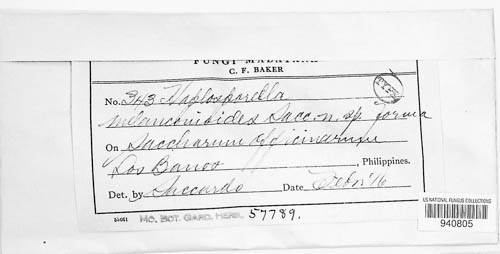 FUNGI MALAYANA
C. F. BAKER
TYPE
No. 343 Haplosporella
melanconioides Sacc. n. sp. forma
On Saccharum officinarum
Los Banos, Philippines.
Det. by Saccardo Date Feb. '16
MO. BOT. GARD. HERB. 57789.
US NATIONAL FUNGUS COLLECTIONS
940805